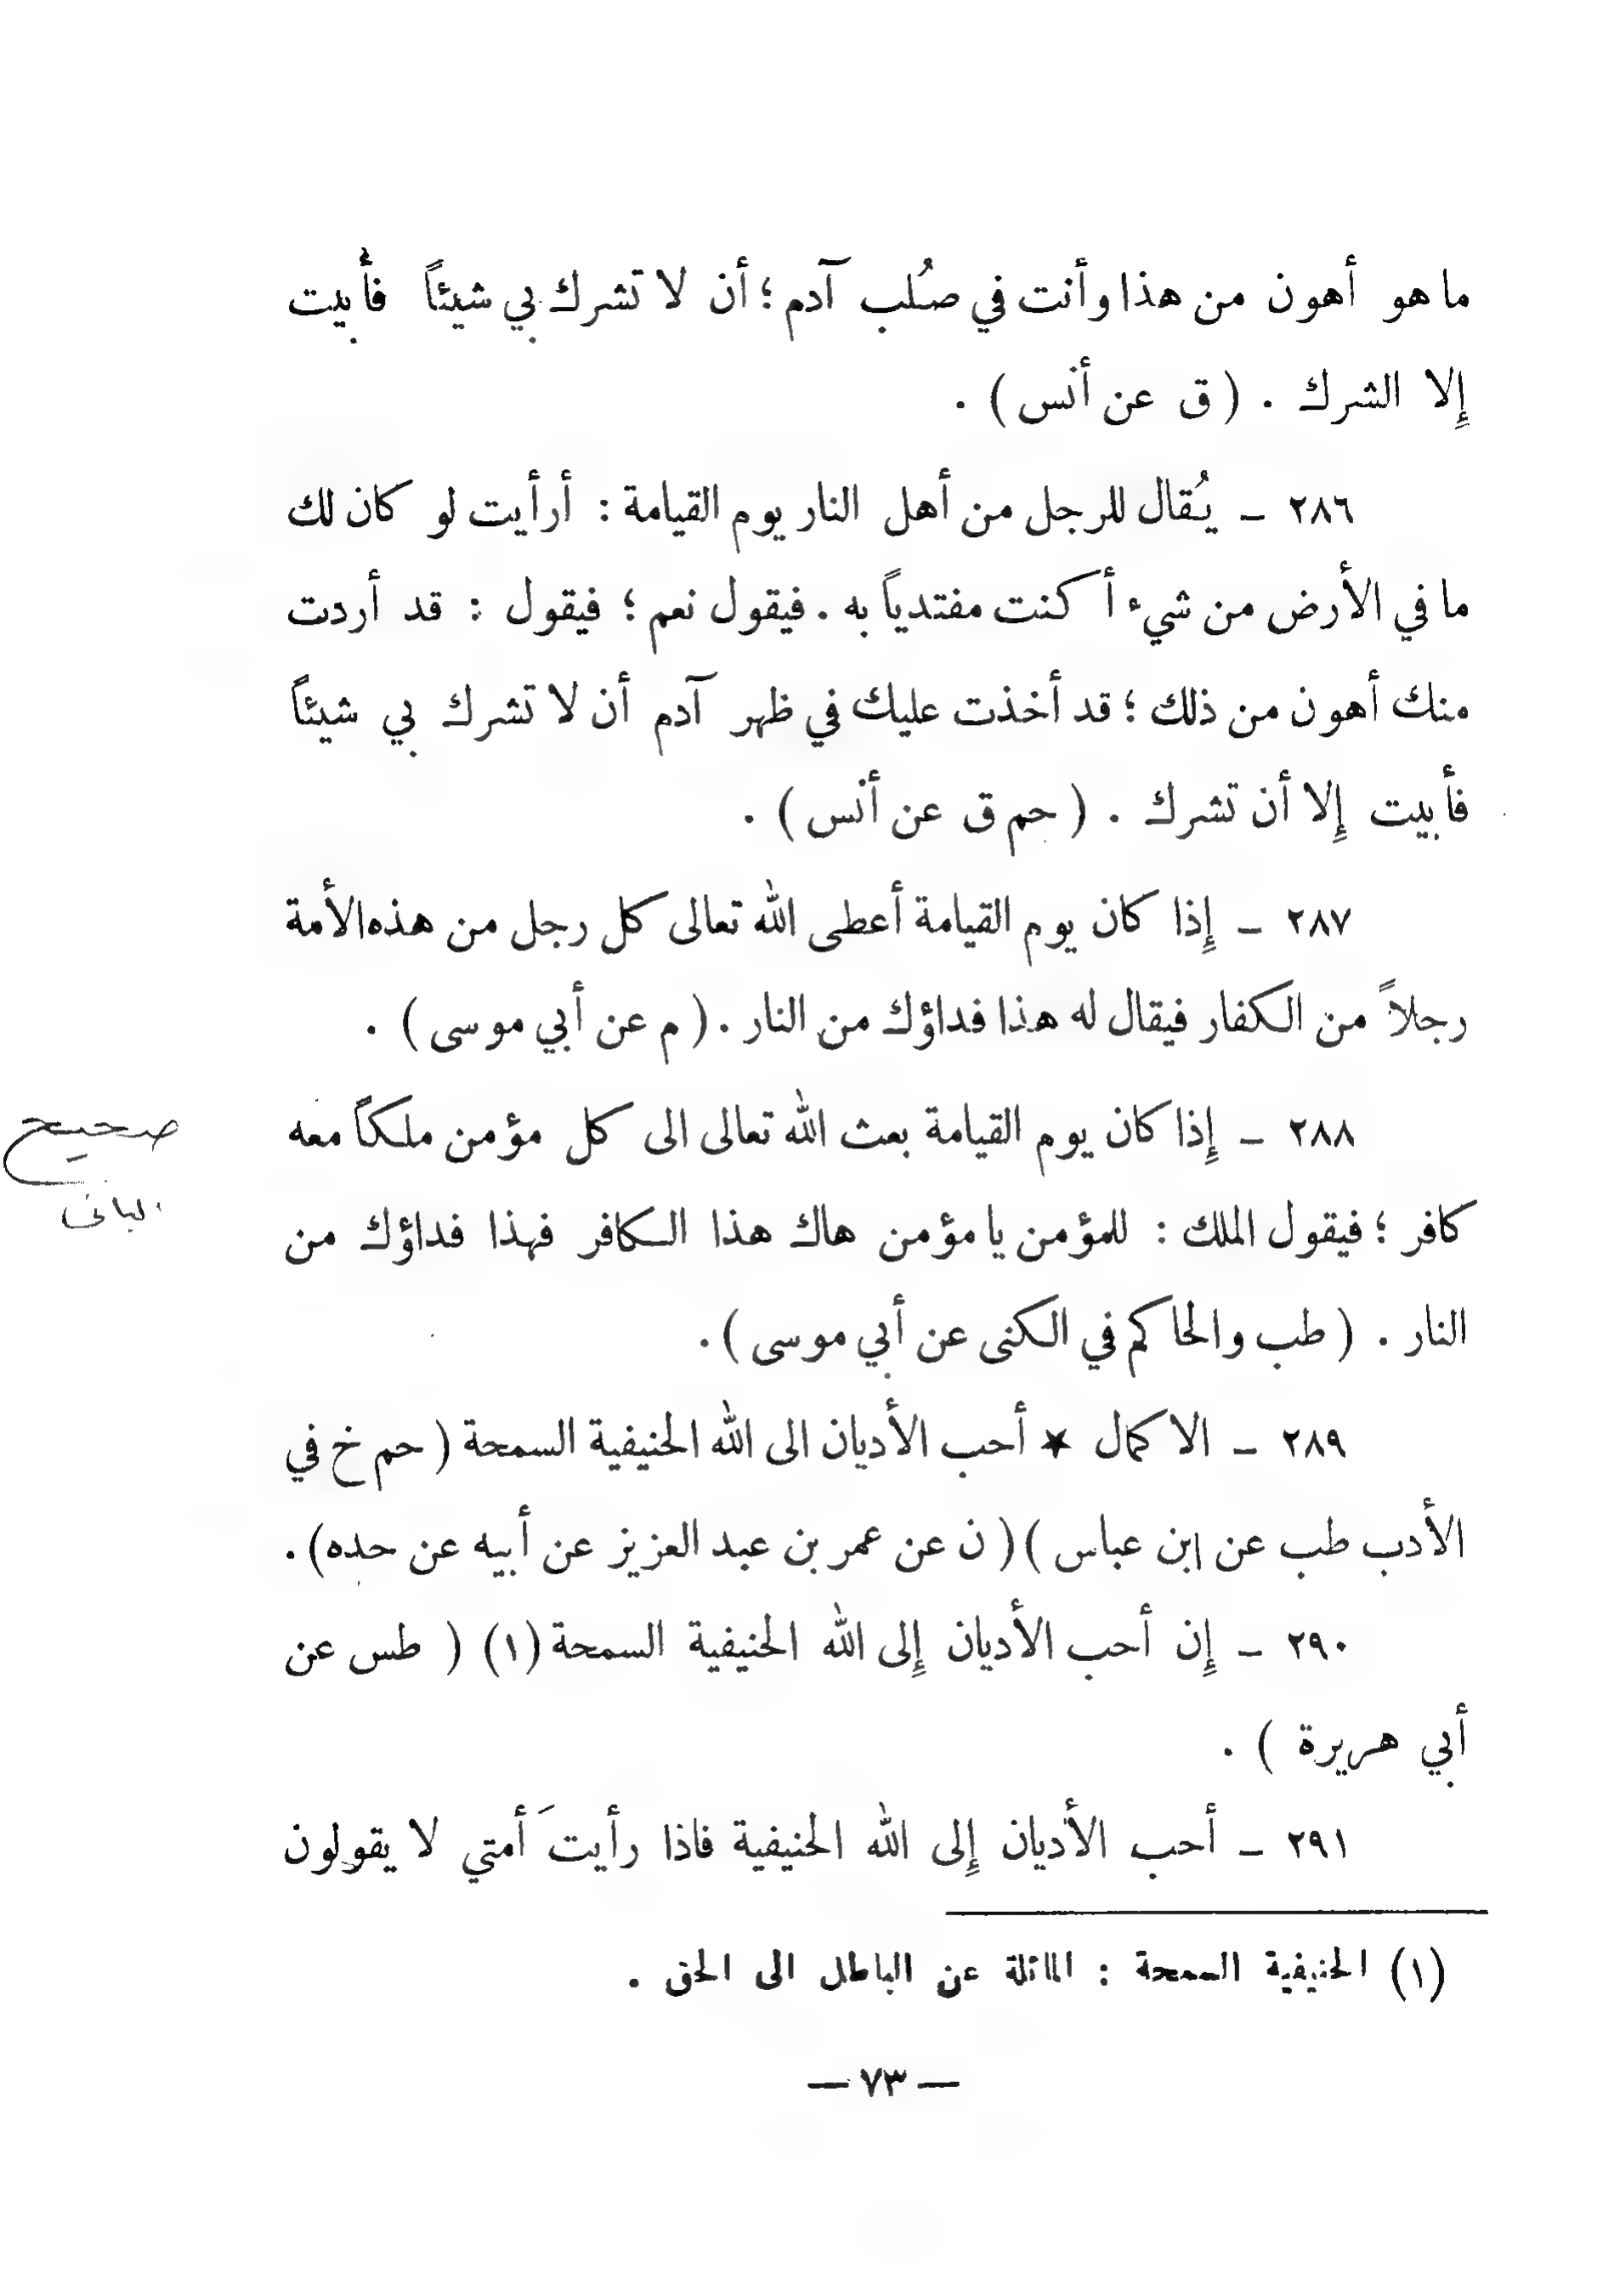 ما هو أهون من هذا وأنت في صُلب آدم ؛ أن لا تشرك بي شيئاً فأبيت
إِلا الشرك . ( ق عن أنس ) .
٢٨٦ ـ يُقال للرجل من أهل النار يوم القيامة : أرأيت لو كان لك
ما في الأرض من شيء أكنت مفتدياً به . فيقول نعم ؛ فيقول : قد أردت
منك أهون من ذلك ؛ قد أخذت عليك في ظهر آدم أن لا تشرك بي شيئاً
فأبيت إِلا أن تشرك . ( حم ق عن أنس ) .
٢٨٧ ـ إِذا كان يوم القيامة أعطى الله تعالى كل رجل من هذه الأمة
رجلاً من الكفار فيقال له هذا فداؤك من النار . ( م عن أبي موسى ) .
٢٨٨ ـ إِذا كان يوم القيامة بعث الله تعالى الى كل مؤمن ملكاً معه
صحيح
كافر ؛ فيقول الملك : للمؤمن يا مؤمن هاك هذا الكافر فهذا فداؤك من
البانى
النار . ( طب والحاكم في الكنى عن أبي موسى ) .
٢٨٩ ـ الاكمال ★ أحب الأديان الى الله الحنيفية السمحة ( حم خ في
الأدب طب عن ابن عباس ) ( ن عن عمر بن عبد العزيز عن أبيه عن حده) .
٢٩٠ ـ إِن أحب الأديان إِلى الله الحنيفية السمحة (١) ( طس عن
أبي هريرة ) .
٢٩١ ـ أحب الأديان إِلى الله الحنيفية فاذا رأيتَ أمتي لا يقولون
(١) الحنيفية السمحة : المائلة عن الباطل الى الحق .
— ٧٣ —